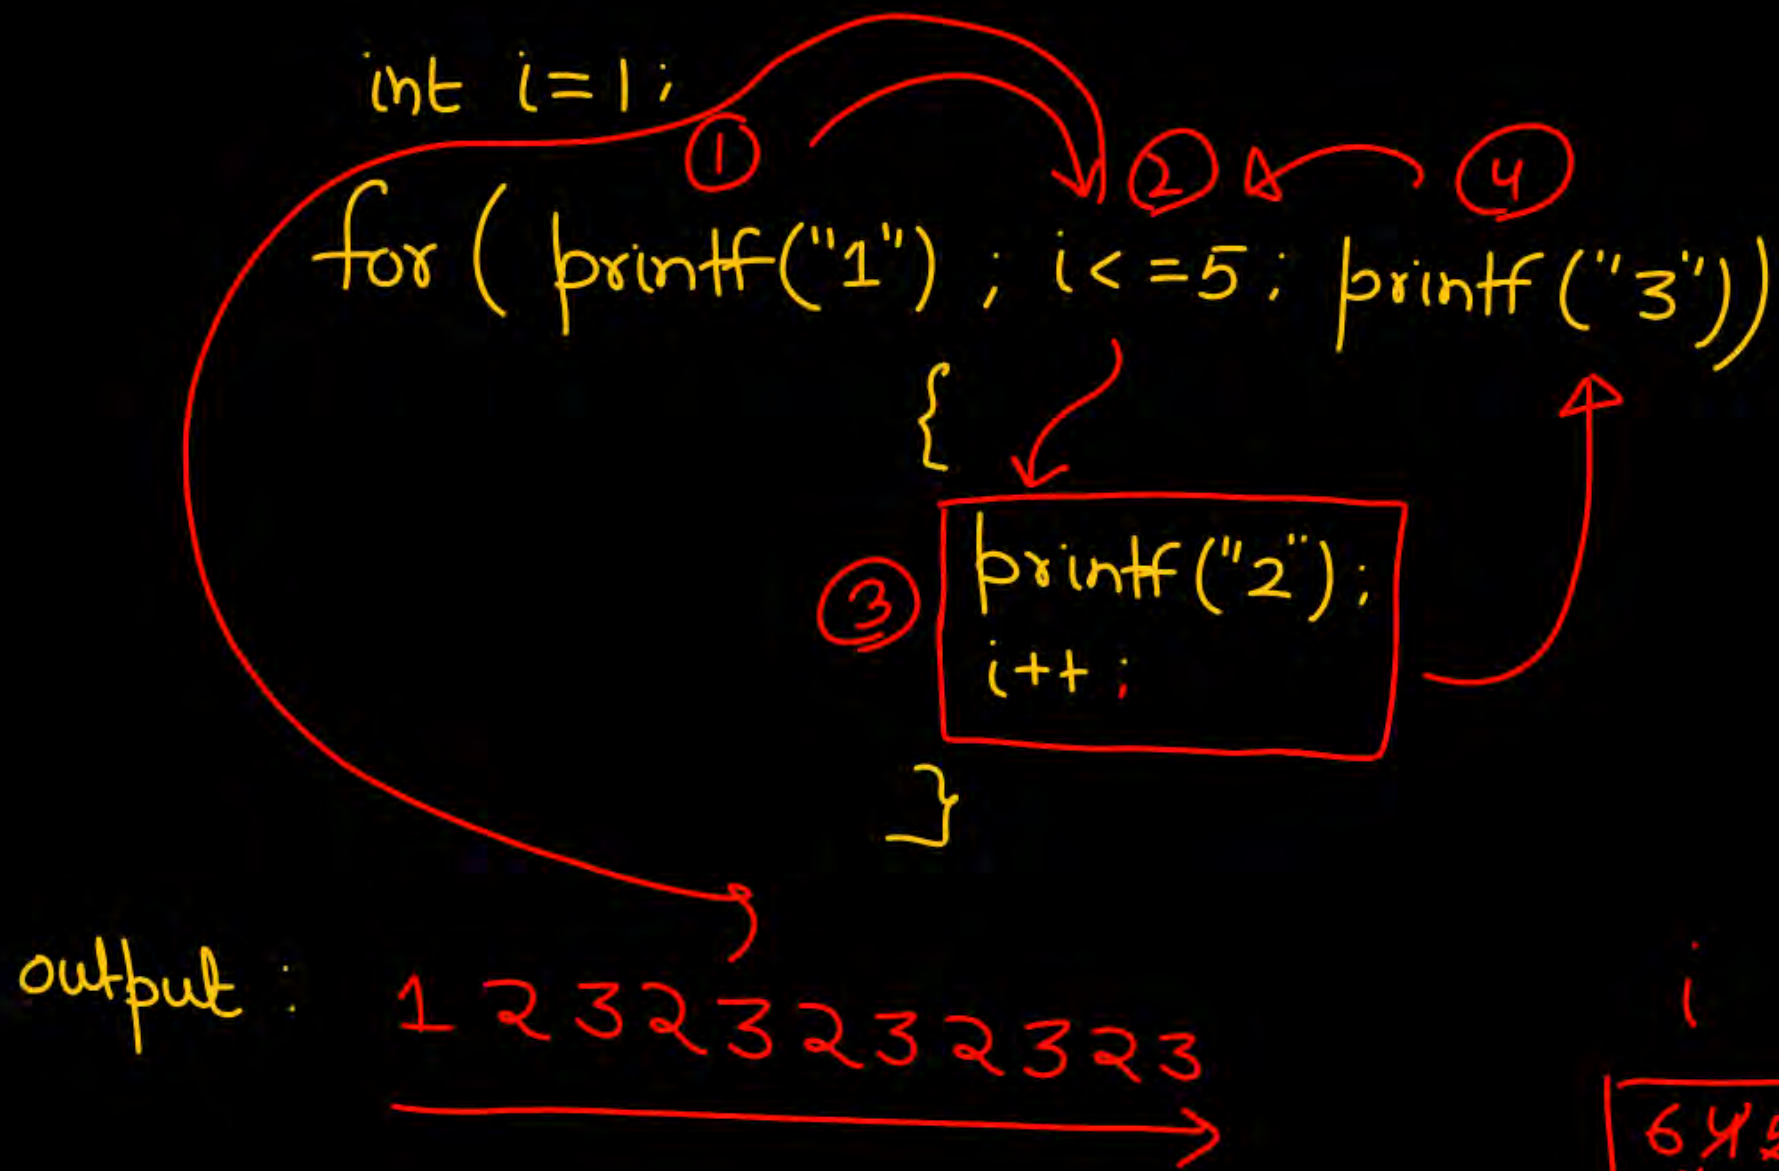 int i=1;
① ② ④
for ( printf("1") ; i<=5; printf("3"))
{
③ printf("2");
i++;
}
output: 1 2 3 2 3 2 3 2 3 2 3
i
6 4 5